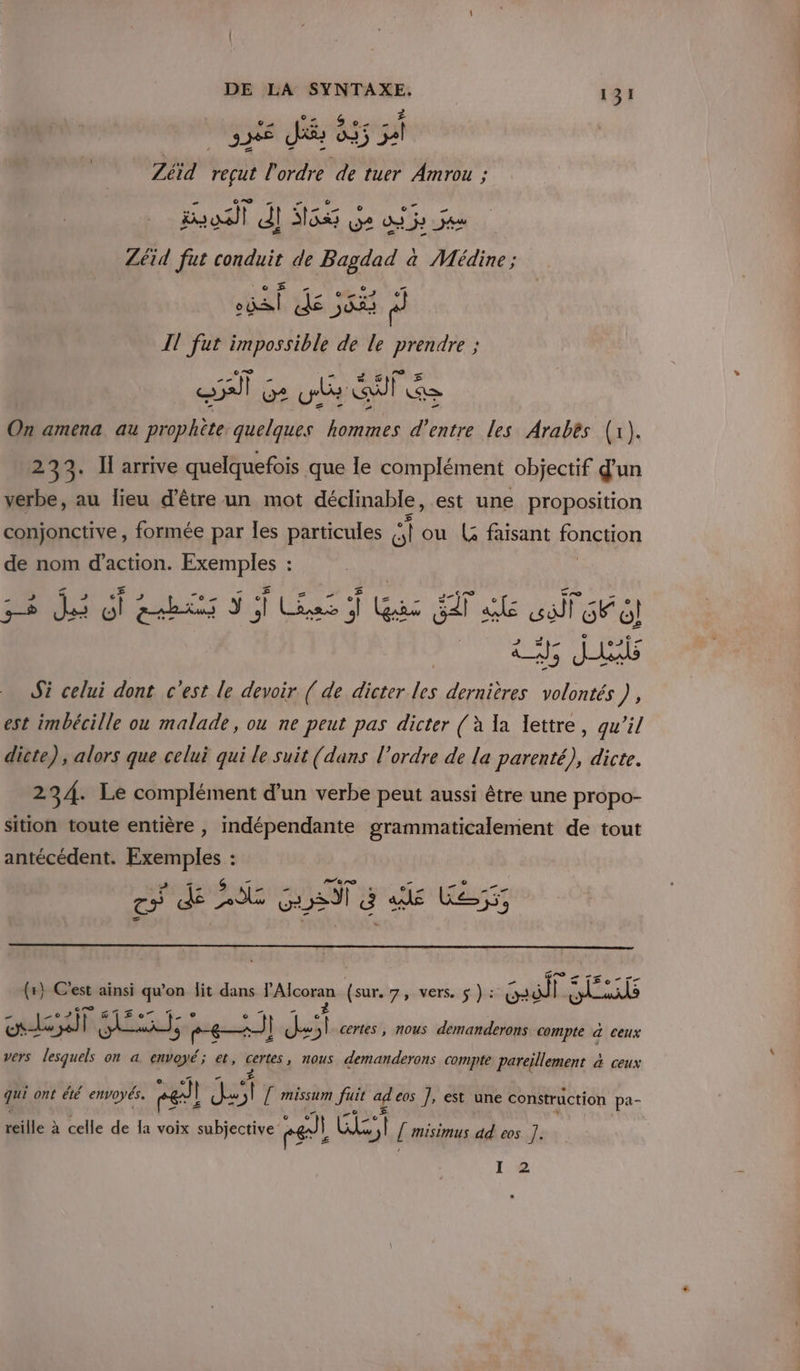 DE LA SYNTAXE. 131
أُمِرَ زَيْدٌ بِقَتْلِ عَمْرٍو
Zéïd reçut l'ordre de tuer Amrou ;
سِيرَ بِزَيْدٍ مِنْ بَغْدَادَ إِلَى ٱلْمَدِينَةِ
Zéïd fut conduit de Bagdad à Médine ;
لَمْ يُقْدَرْ عَلَى أَخْذِهِ
Il fut impossible de le prendre ;
جِيءَ ٱلنَّبِيُّ بِنَاسٍ مِنَ ٱلْعَرَبِ
On amena au prophète quelques hommes d'entre les Arabès (1).
233. Il arrive quelquefois que le complément objectif d'un
verbe, au lieu d'être un mot déclinable, est une proposition
conjonctive, formée par les particules أَنْ ou مَا faisant fonction
de nom d'action. Exemples :
إِنْ كَانَ ٱلَّذِى عَلَيْهِ ٱلْحَقُّ سَفِيهًا أَوْ ضَعِيفًا أَوْ لَا يَسْتَطِيعُ أَنْ يُمِلَّ هُــوَ
فَلْيُمْلِلْ وَلِيُّــهُ
Si celui dont c'est le devoir ( de dicter les dernières volontés ),
est imbécille ou malade, ou ne peut pas dicter ( à la lettre, qu'il
dicte), alors que celui qui le suit (dans l'ordre de la parenté), dicte.
234. Le complément d'un verbe peut aussi être une propo-
sition toute entière, indépendante grammaticalement de tout
antécédent. Exemples :
وَتَرَكْنَا عَلَيْهِ فِى ٱلْآخِرِينَ سَلَامٌ عَلَى نُوحٍ
(1) C'est ainsi qu'on lit dans l'Alcoran (sur. 7, vers. 5) : فَلَنَسْئَلَنَّ ٱلَّذِينَ
أُرْسِلَ إِلَــيْــهِــمْ وَلَنَسْئَلَنَّ ٱلْمُرْسَلِينَ certes, nous demanderons compte à ceux
vers lesquels on a envoyé ; et, certes, nous demanderons compte pareillement à ceux
qui ont été envoyés. أُرْسِلَ إِلَيْهِمْ [ missum fuit ad eos ], est une construction pa-
reille à celle de la voix subjective أَرْسَلْنَا إِلَيْهِمْ [ misimus ad eos ].
I 2